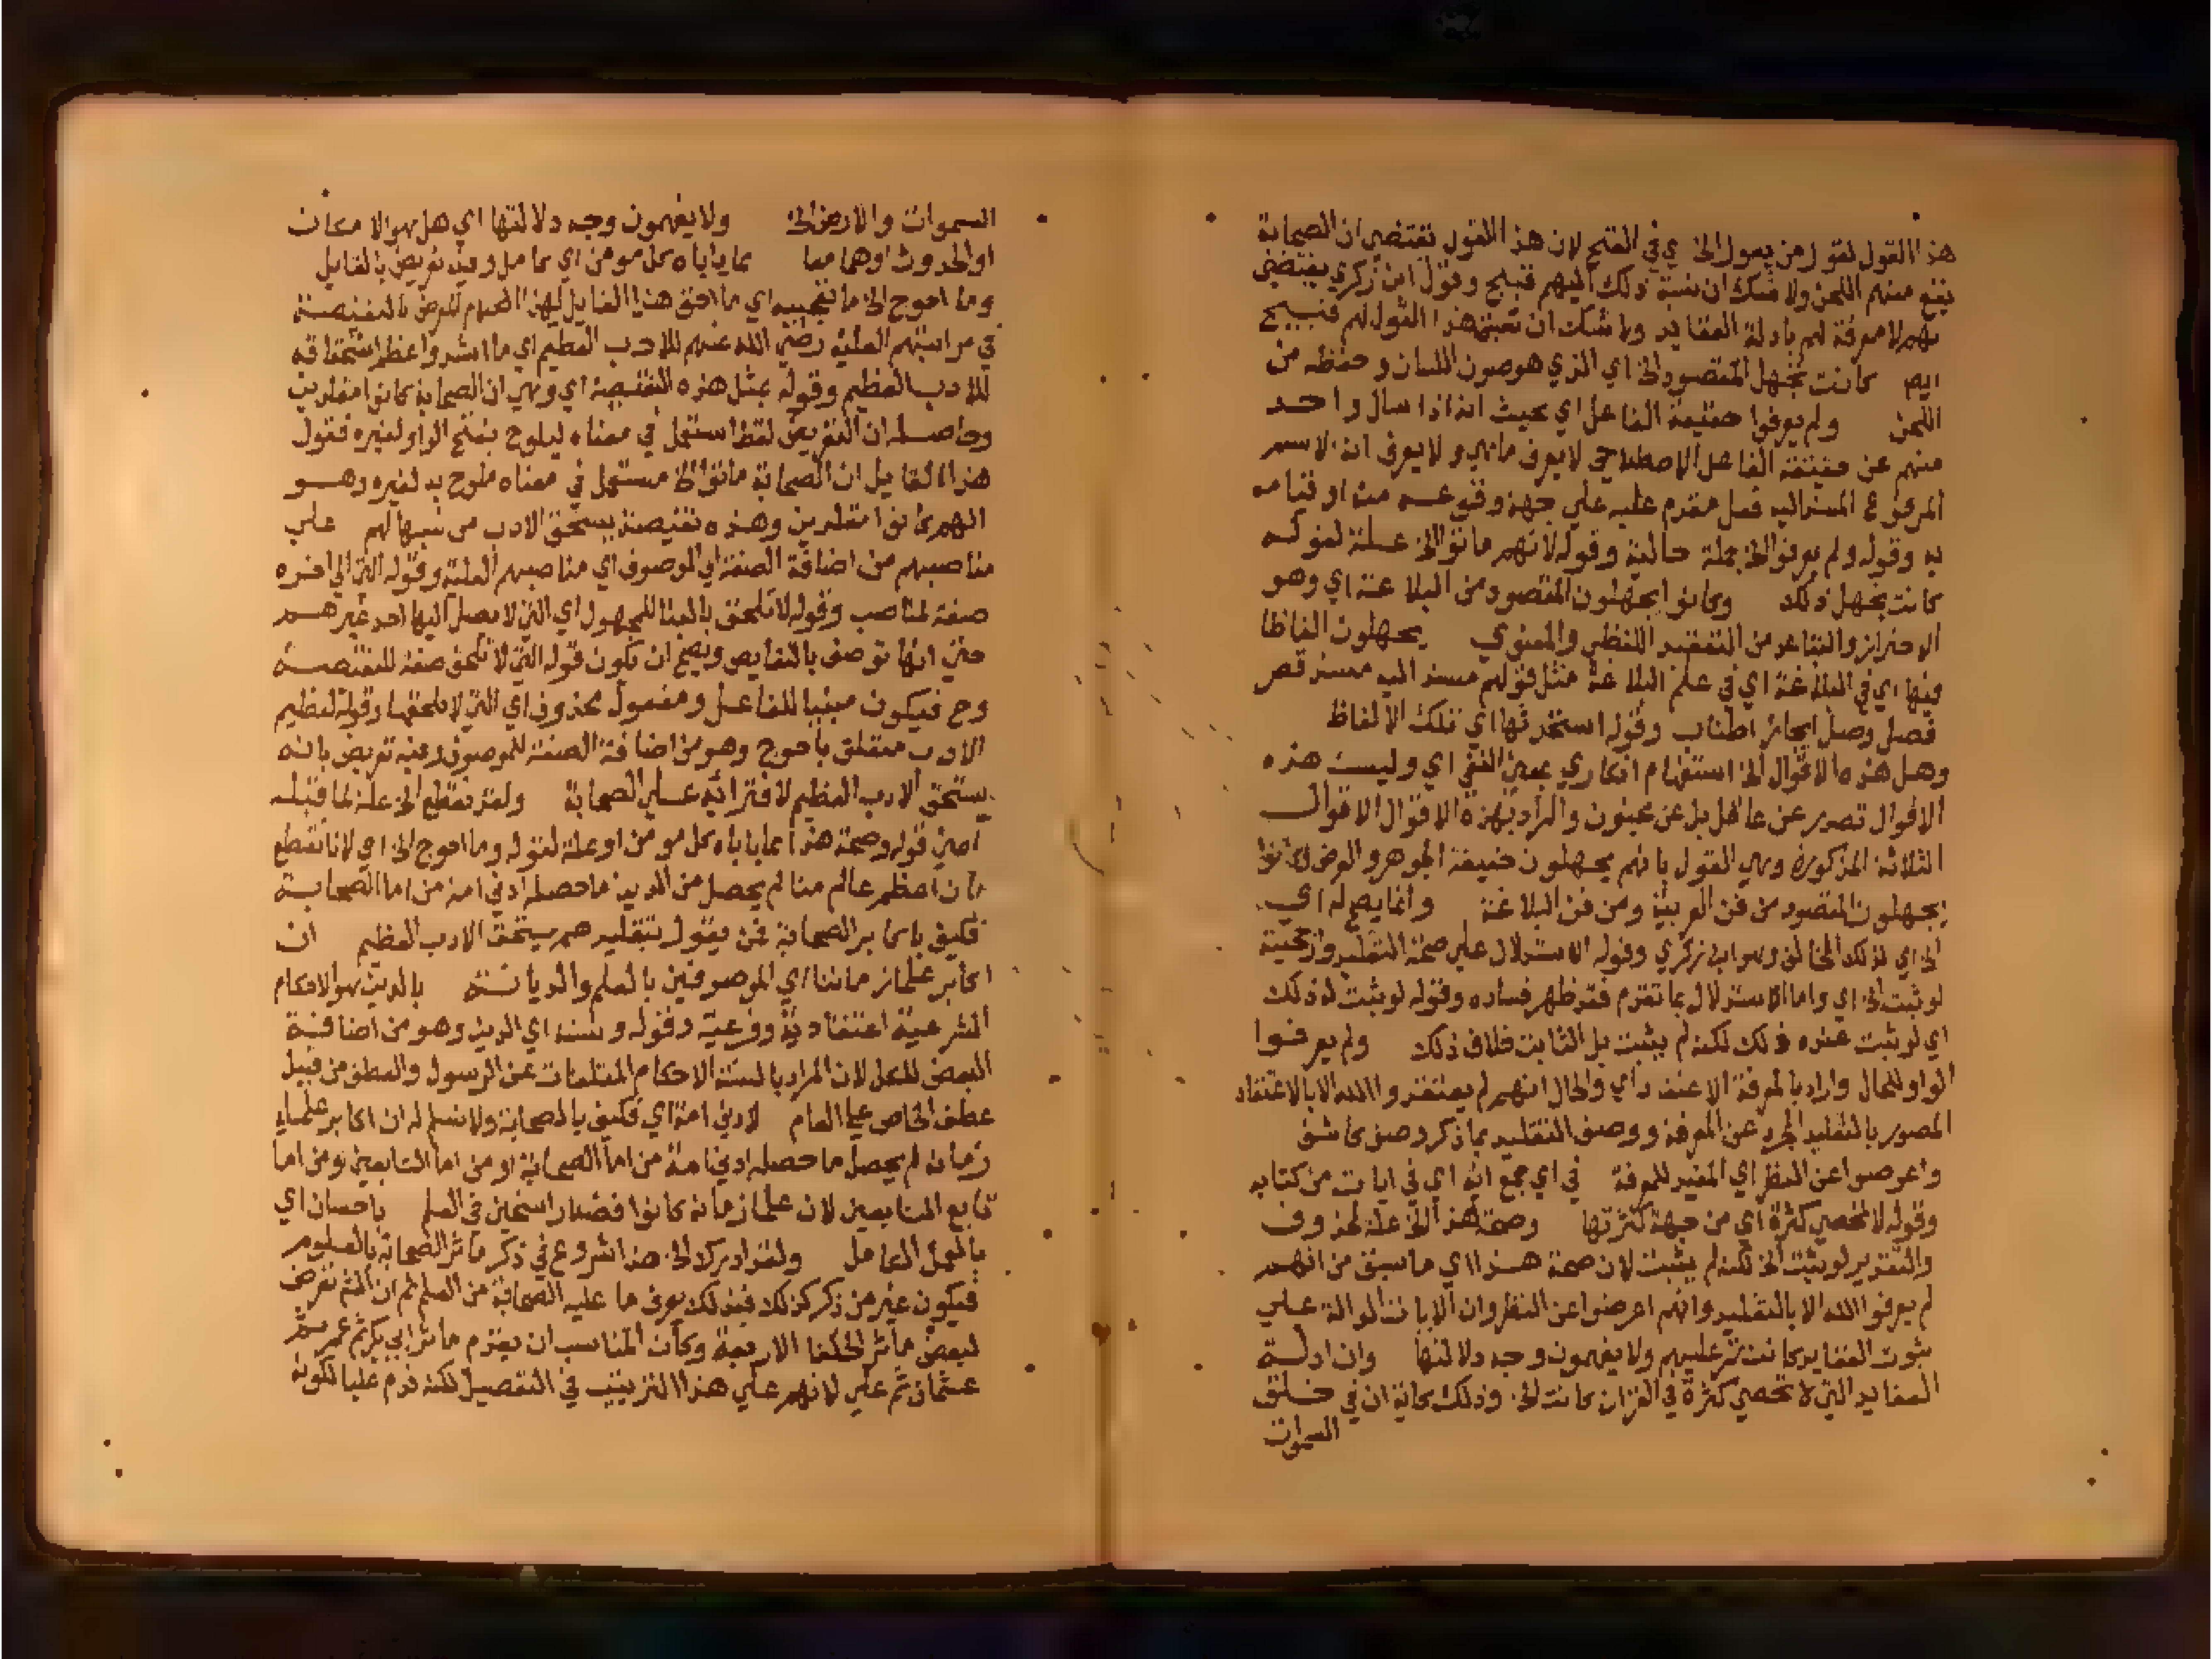 هذا القول لقول من يقول الخ اي في القبح لان هذا القول يقتضي ان الصحابة
يقع منهم اللحن ولا شك ان نسبة ذلك اليهم قبيح وقول ابن زكري يقتضي
انهم لا معرفة لهم بادلة العقايد ولا شك ان هذا القول لهم قبيح
كانت تجهل المقصود الخ اي الذي هو صون اللسان وحفظه من
اللحن ولم يعرفوا حقيقة الفاعل اي بحيث انه اذا سال واحد
منهم عن حقيقة الفاعل الاصطلاحي لا يعرف ماهي ولا يعرف انه الاسم
المرفوع المسند اليه فعل مقدم عليه علي جهة وقوعه منه او قيامه
به وقوله ولم يعرفوا الخ جملة حالية وقوله لانهم ماتوا الخ علة لقوله
كانت تجهل ذلك وكانوا يجهلون المقصود من البلاغة اي وهو
الاحتراز والتباعد من التعقيد اللفظي والمعنوي يجهلون الفاظا
فيها اي في البلاغة اي في علم البلاغة مثل قولهم مسند اليه مسند قصر
فصل وصل ايجاز اطناب وقوله استخرقها اي تلك الالفاظ
وهل هذه الاقوال الخ استفهام انكاري بمعني النفي اي وليست هذه
الاقوال تصدر عن عاقل بل عن مجنون والمراد بهذه الاقوال الاقوال
الثلاثة المذكورة وهي القول بانهم يجهلون حقيقة الجوهر والعرض
يجهلون المقصود من فن العربية ومن فن البلاغة وانما يصح له اي
الخ اي لذلك المخالف وهو ابن زكري وقوله الاستدلال علي صحة التقليد
لو ثبت الخ اي واما الاستدلال بما تقدم فقد ظهر فساده وقوله لو ثبت له ذلك
اي لو ثبت عنده ذلك لكنه لم يثبت بل الثابت خلاف ذلك ولم يعرفوا
الواو للحال واراد بالمعرفة الاعتقاد اي والحال انهم لم يعتقدوا الله الا بالاعتقاد
المصور بالتقليد المجرد عن المعرفة ووصف التقليد بما ذكر وصف كاشف
واعرضوا عن النظر اي المفيد للمعرفة في اي جمع اية اي في ايات من كتابه
وقوله لا تحصي كثرة اي من جهة كثرتها وصحة هذا الخ علة لمحذوف
والتقدير لو ثبت الخ لكنه لم يثبت لان صحة هذا اي ما سبق من انهم
لم يعرفوا الله الا بالتقليد وانهم اعرضوا عن النظر وان الايات الدالة علي
ثبوت العقايد كانت تمر عليهم ولا يفهمون وجه دلالتها وان ادلة
العقايد التي لا تحصي كثرة في القران كانت الخ وذلك كاية ان في خلق
السموات
السموات والارض الخ ولا يفهمون وجه دلالتها اي هل هو الامكان
او الحدوث او هما معا مما ياباه كل مومن اي كامل وفيه تعريض بالقايل
وما احوج الخ ما تعجبيه اي ما احق هذا القايل لهذا الكلام المعرض بالنقيصة
في مراتبهم العلية رضي الله عنهم للادب العظيم اي ما اشد واعظم استحقاقه
للادب العظيم وقوله بمثل هذه النقيصة اي وهي ان الصحابة كانوا مقلدين
وحاصله ان التعريض لفظ استعمل في معناه ليلوح بفتح الواو لغيره فقول
هذا القايل ان الصحابة ماتوا الخ مستعمل في معناه ملوح به لغيره وهو
انهم كانوا مقلدين وهذه نقيصة يستحق الادب من نسبها لهم علي
مناصبهم من اضافة الصفة الي الموصوف اي مناصبهم العلية وقوله التي الي اخره
صفة لمناصب وقوله لا تلحق بالبنا للمجهول اي التي لا يصل اليها احد غيرهم
حتي انها توصف بالنقايص ويصح ان تكون قوله التي لا تلحق صفة للنقيصة
وح فيكون مبنيا للفاعل ومفعوله محذوف اي التي لا تلحقها وقوله لعظيم
الادب متعلق باحوج وهو من اضافة الصفة للموصوف وفيه تعريض بانه
يستحق الادب العظيم لافترائه علي الصحابة ولقد نقطع الخ علة لما قبله
اعني قوله وصحة هذا مما ياباه كل مومن او علة لقوله وما احوج الخ اي لانا نقطع
بان اعظم عالم منا لم يحصل من الدين ما حصله ادني امة من اما الصحابة
فكيف باكابر الصحابة فمن يقول بتقليدهم يستحق الادب العظيم ان
اكابر علما زماننا اي الموصوفين بالعلم والديانة بالدين هو الاحكام
الشرعية اعتقادية وفرعية وقوله وسننه اي الدين وهو من اضافة
البعض للكل لان المراد بالسنة الاحكام المتلقات عن الرسول والعطف من قبيل
عطف الخاص علي العام لادني امة اي فكيف بالصحابة ولا نسلم له ان اكابر علماء
زمانه لم يحصل ما حصله ادني امة من اما الصحابة او من اما التابعين ومن اما
تابع التابعين لان علما زمانه كانوا فضلا راسخين في العلم باحسان اي
بالعمل الكامل ولقد ادرك الخ هذا شروع في ذكر ماثر الصحابة بالعلوم
فيكون غير من ذكر كذلك فبذلك يعرف ما عليه الصحابة من العلم ثم ان الشم تعرض
لبعض ماثر الخلفا الاربعة وكان المناسب ان يقدم ماثر ابي بكر ثم عمر ثم
عثمان ثم علي لانهم علي هذا الترتيب في التفضيل لكنه قدم عليا لكونه